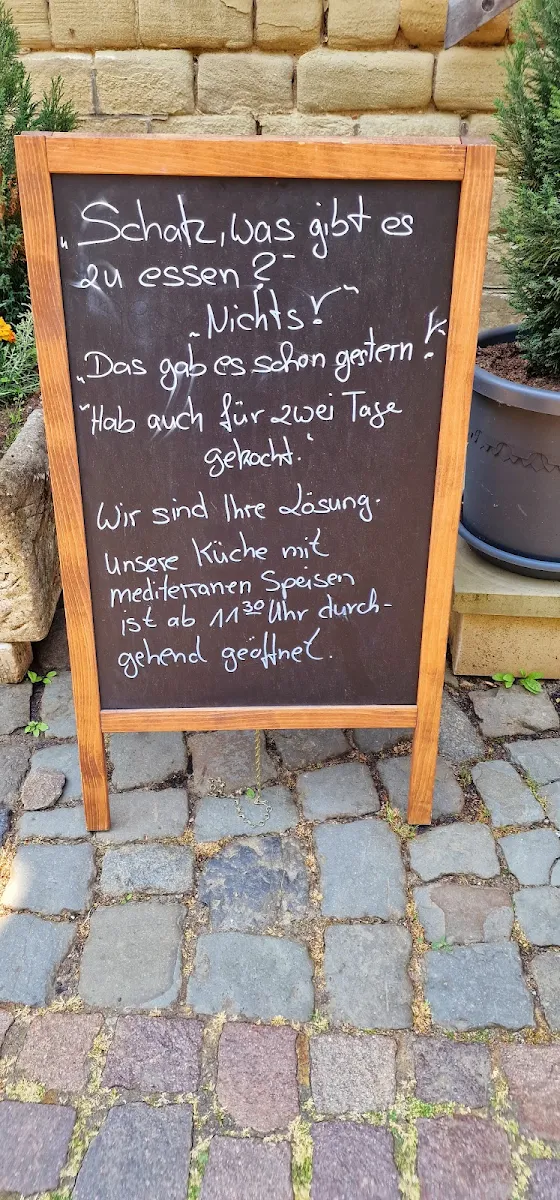 „Schatz, was gibt es
zu essen?"
„Nichts!"
„Das gab es schon gestern!"
"Hab auch für zwei Tage
gekocht."
Wir sind Ihre Lösung.
Unsere Küche mit
mediterranen Speisen
ist ab 11³⁰ Uhr durch-
gehend geöffnet.